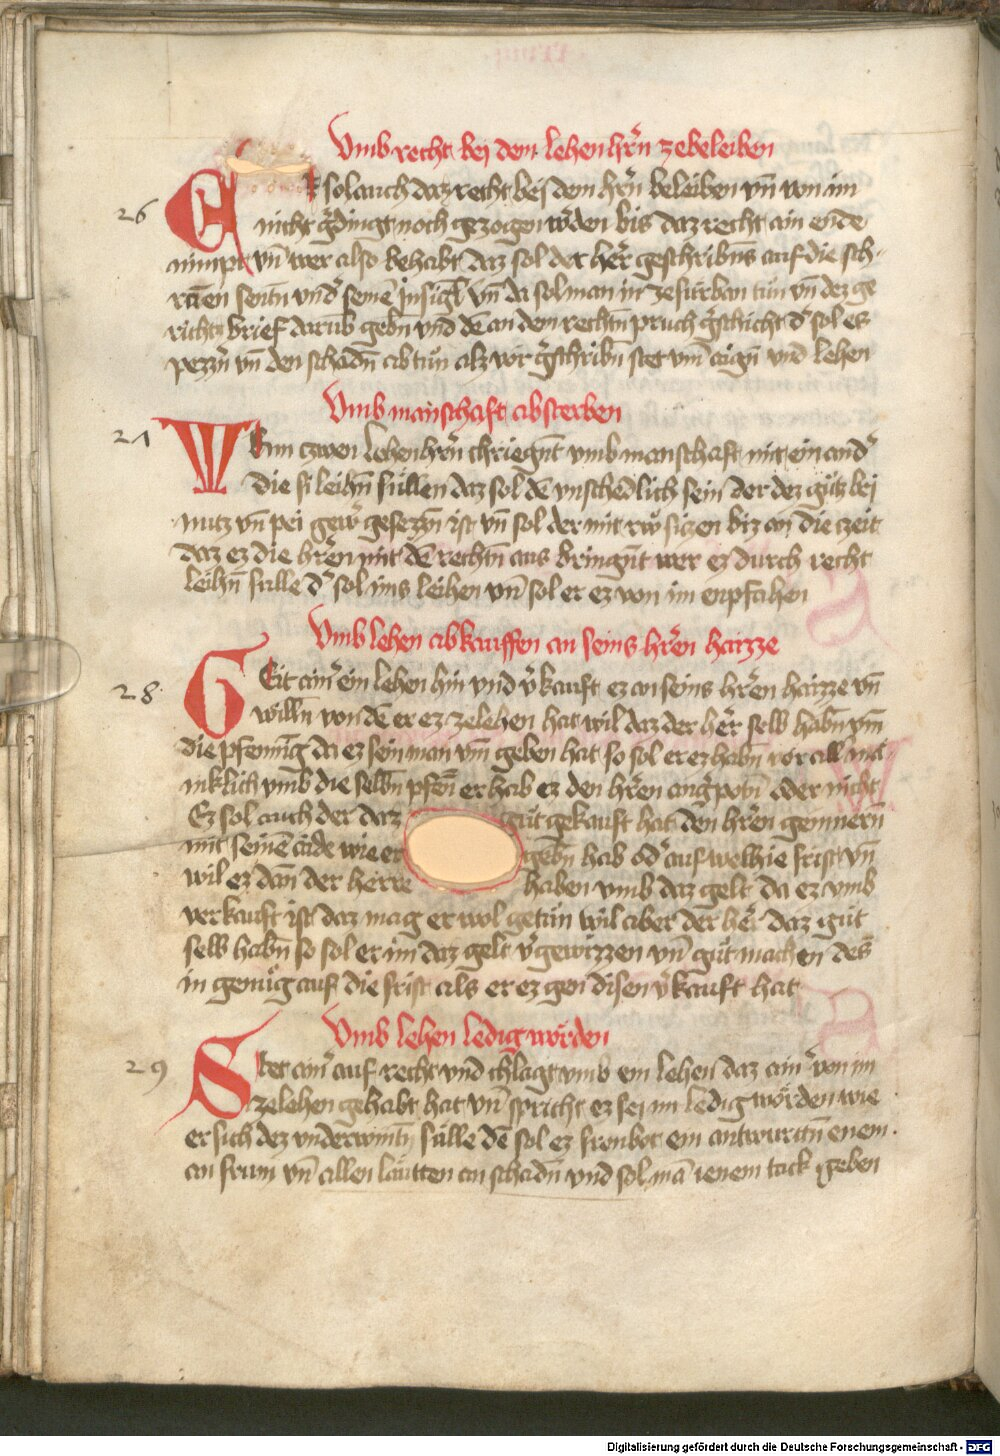 Vmb recht bej dem lehenhrn̄ zebeleiben
26 Ez sol auch daz recht bej dem hrn̄ beleiben vn̄ von im
nicht gedingt noch gezogen werden bis daz recht ain ende
nimpt vn̄ wer also behabt daz sol der herr geschribens auf die sch-
rannen sentn̄ vnd' seinē Insigl vn̄ da sol man in ze fürban tün vn̄ dez ge
richts brief darūb gebn̄ vnd dē an dem rechtn̄ pruch geschicht d' sol es
pezzn̄ vn̄ den schadn̄ abtün alz vor geschribn̄ stet vm̄ aign̄ vnd lehen
Vmb manschaft absterben
27 Wenn czwen lehenhrn̄ chriegnt vmb manschaft mit ein and'
die si leihn̄ süllen daz sol dē vnschedlich sein der dez gutz bej
nutz vn̄ pei gewer gesezzn̄ ist vn̄ sol der mit rw siczen biz an die czeit
daz ez die hren̄ mit dē rechtn̄ aus bringnt wer ez durch recht
leihn̄ sulle d' sol ims leihen vn̄ sol er ez von im enpfahen
Vmb lehen abkauffen an seins hren̄ haizze
28 Geit ain' ein lehen hin vnd v'kauft ez an seins hren̄ haizze vn̄
willn̄ von dē er ez ze lehen hat wil daz der herr selb habn̄ vm̄
die pfennīg da ez sein man vm̄ geben hat so sol er ez habn̄ vor all mä
inklich vmb die selbn̄ pfen̄ er hab ez den hren̄ angepotn̄ oder nicht
Ez sol auch der daz güt gekauft hat den hren̄ gemnern̄
mit seinē aide wie er gebn̄ hab od' auf welhie frist vn̄
wil ez dan̄ der herre haben vmb daz gelt da ez vmb
verkauft ist daz mag er wol getün wil aber der herr daz güt
selb habn̄ so sol er im daz gelt v'gewizzen vn̄ güt machen des
in genüg auf die frist als er ez gen disen v'kauft hat
Vmb lehen ledig worden
29 Stet ain' auf recht vnd chlagt vmb ein lehen daz ain' von im
ze lehen gehabt hat vn̄ spricht ez sej im ledig worden wie
er sich dez vnderwintn̄ sülle dē sol ez fronbot ein antwurttn̄ enem
an frum vn̄ allen läutten an schadn̄ vnd sol mā ienem tack geben
Digitalisierung gefördert durch die Deutsche Forschungsgemeinschaft - DFG